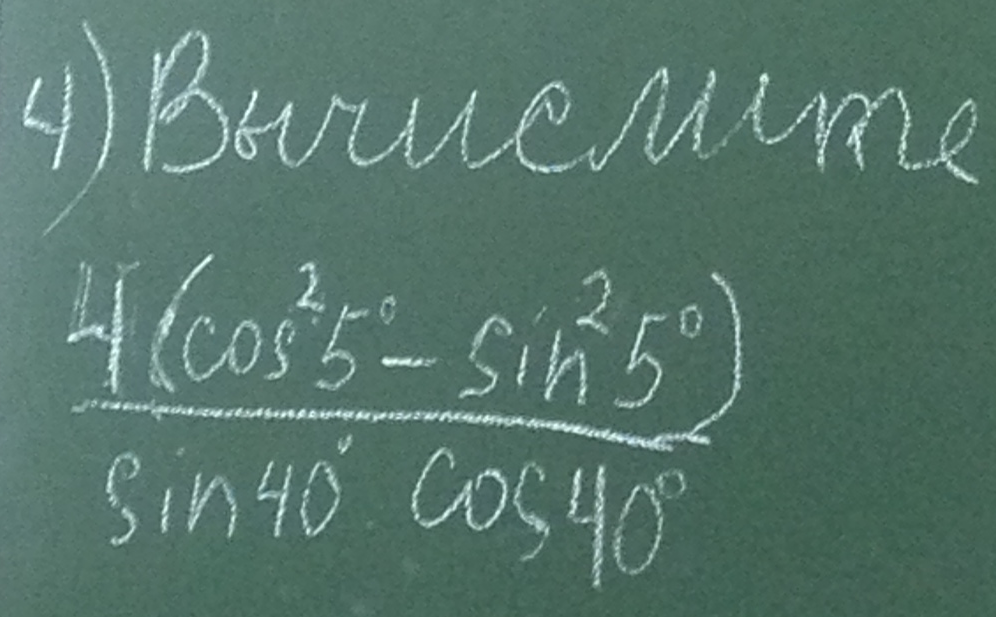 4) Вычислите
4(cos²5° - sin²5°)
sin40° cos40°